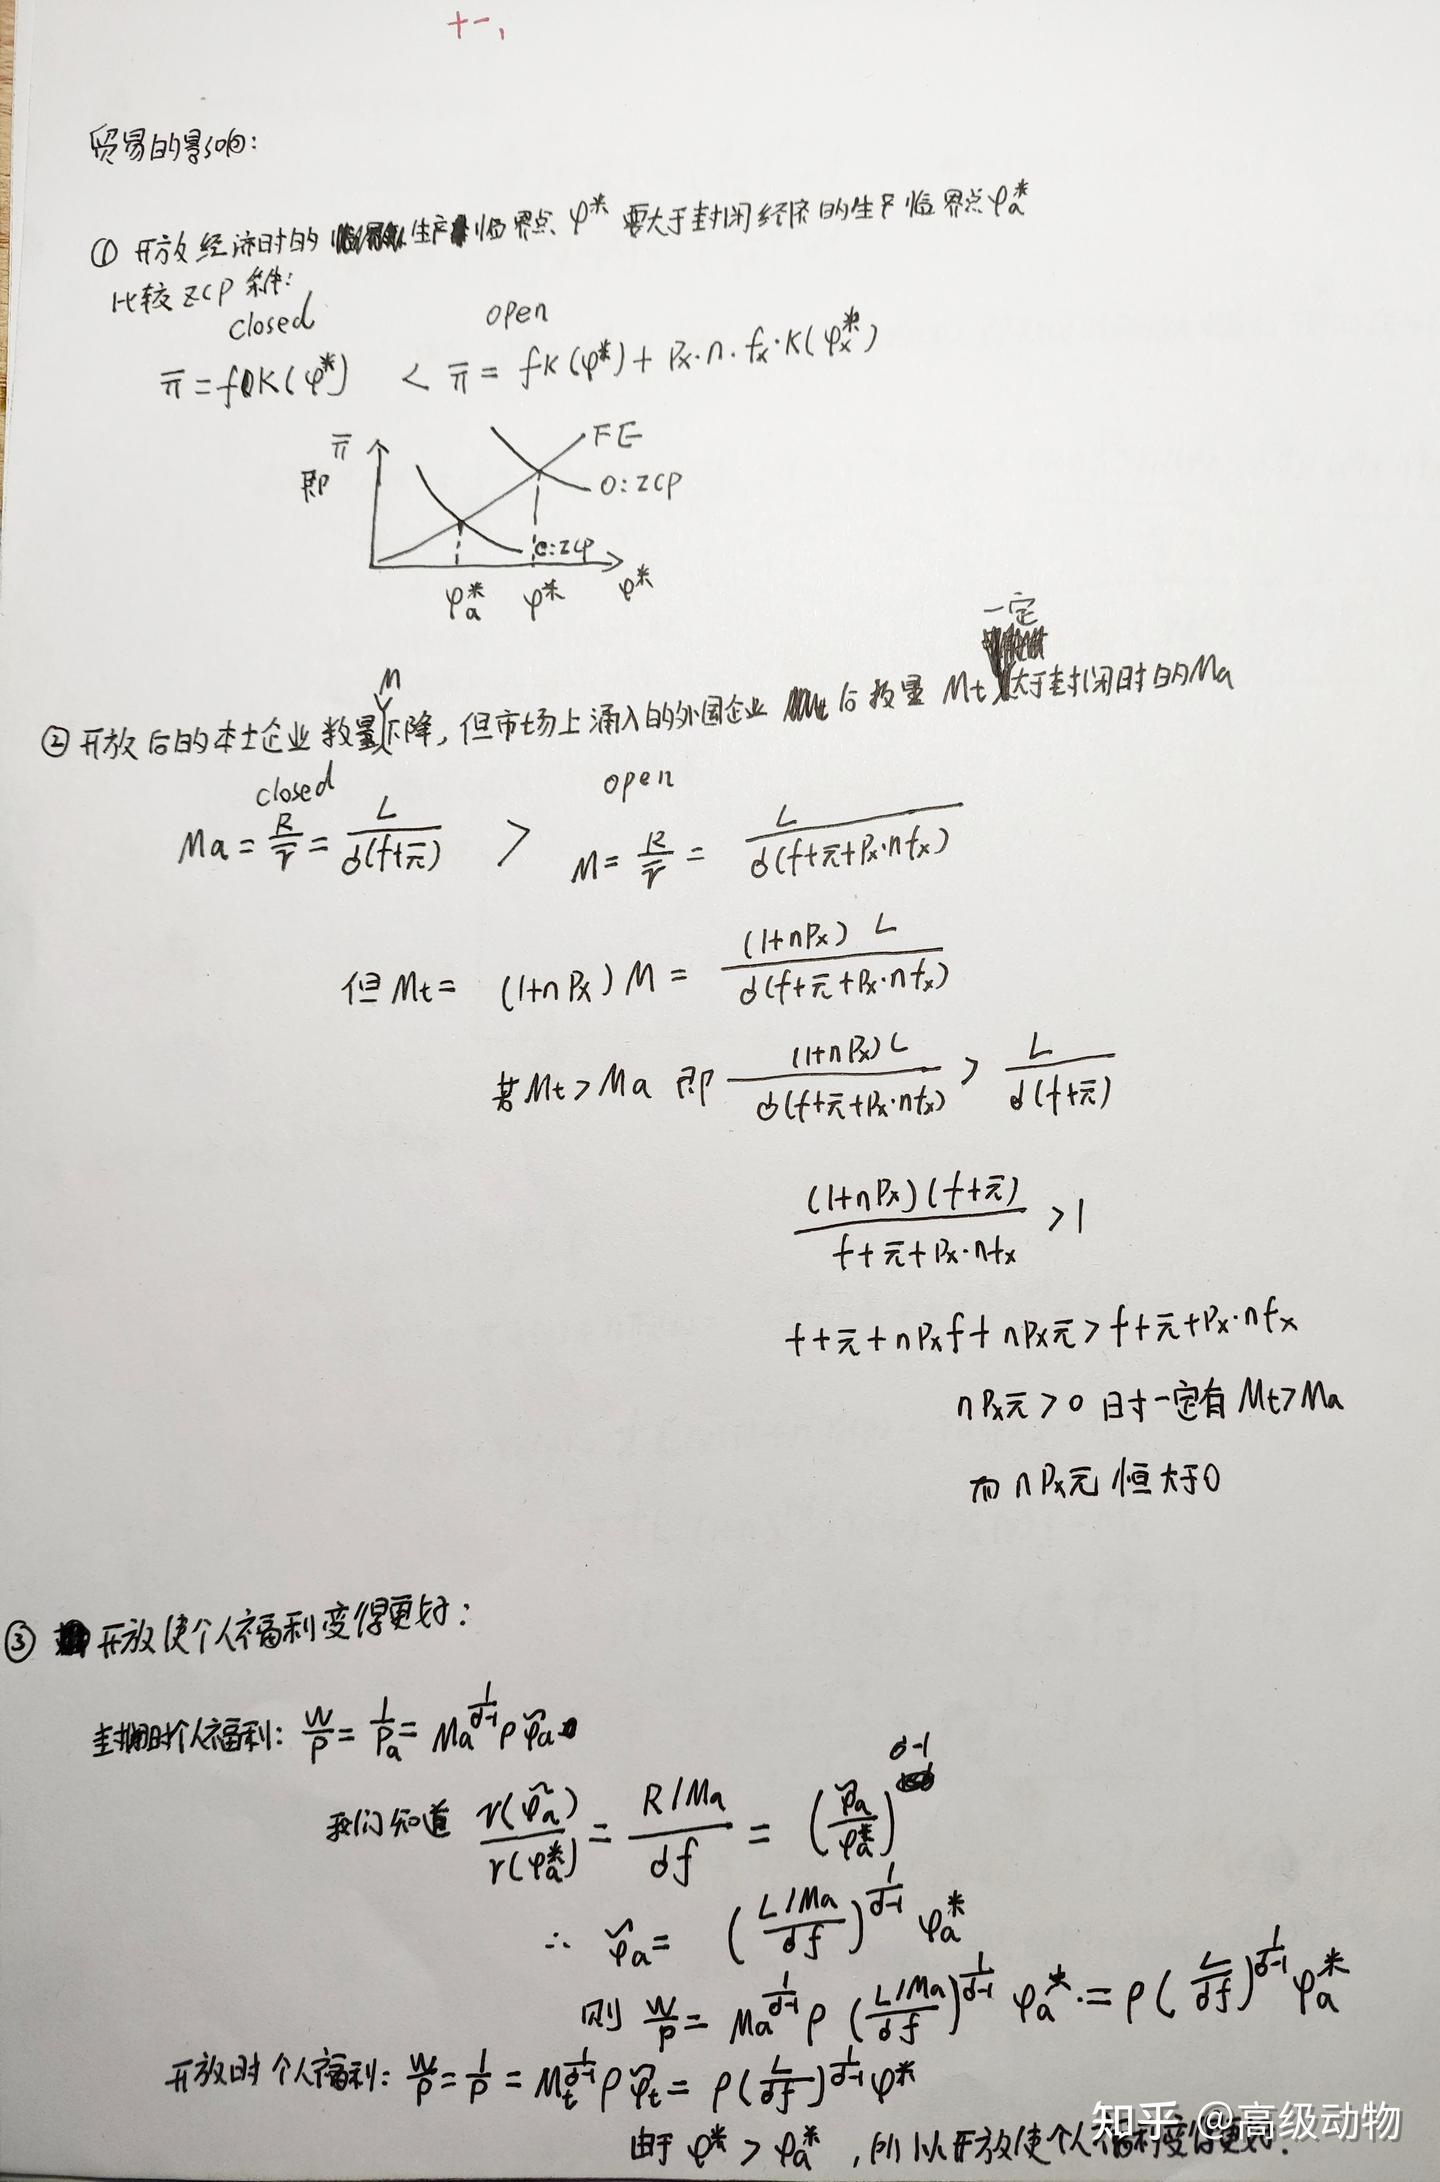 十一、
贸易的影响:
① 开放经济时的生产临界点 φ* 要大于封闭经济的生产临界点 φa*
比较 ZCP 条件:
closed open
π̄ = fK(φ*) < π̄ = fK(φ*) + Px·n·fx·K(φx*)
π̄ FE
即 O:ZCP
C:ZCP
φa* φ* φ*
一定
M
② 开放后的本土企业数量下降, 但市场上涌入的外国企业后数量 Mt 大于封闭时的Ma
closed open
Ma = R/r̄ = L/σ(f+π̄) > M = R/r̄ = L/σ(f+π̄+Px·nfx)
但 Mt = (1+nPx)M = (1+nPx)L/σ(f+π̄+Px·nfx)
若 Mt > Ma 即 (1+nPx)L/σ(f+π̄+Px·nfx) > L/σ(f+π̄)
(1+nPx)(f+π̄)/f+π̄+Px·nfx > 1
f+π̄+nPxf+nPxπ̄ > f+π̄+Px·nfx
nPxπ̄ > 0 时一定有 Mt > Ma
而 nPxπ̄ 恒大于0
③ 开放使个人福利变得更好:
封闭时个人福利: W/P = 1/Pa = Ma^(1/σ-1) ρ φ̃a
我们知道 r(φ̃a)/r(φa*) = R/Ma/σf = (φ̃a/φa*)^σ-1
∴ φ̃a = (L/Ma/σf)^(1/σ-1) φa*
则 W/P = Ma^(1/σ-1) ρ (L/Ma/σf)^(1/σ-1) φa* = ρ(L/σf)^(1/σ-1) φa*
开放时个人福利: W/P = 1/P = Mt^(1/σ-1) ρ φ̃t = ρ(L/σf)^(1/σ-1) φ*
由于 φ* > φa*, 所以开放使个人福利变得更好.
知乎 @高级动物